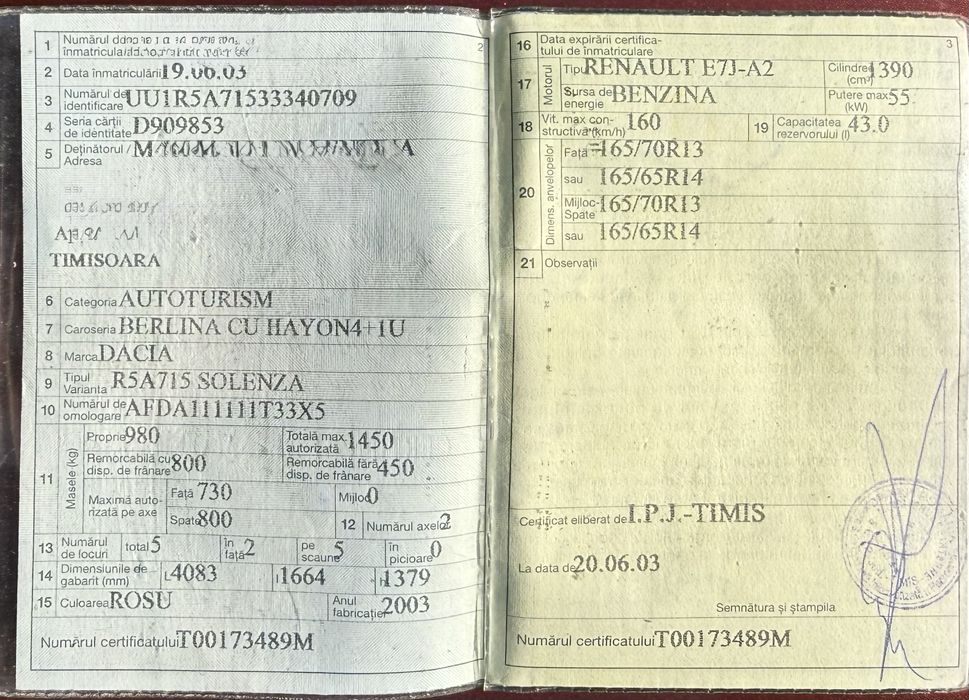 2
1 Numărul
înmatricula
2 Data înmatriculării 19.06.03
3 Numărul de identificare UU1R5A71533340709
4 Seria cărții de identitate D909853
5 Deținătorul / Adresa
TIMISOARA
6 Categoria AUTOTURISM
7 Caroseria BERLINA CU HAYON4+1U
8 Marca DACIA
9 Tipul Varianta R5A715 SOLENZA
10 Numărul de omologare AFDA111111T33X5
11 Masele (kg)
Proprie 980 Totală max. autorizată 1450
Remorcabilă cu disp. de frânare 800 Remorcabilă fără disp. de frânare 450
Maximă autorizată pe axe Față 730 Mijloc 0
Spate 800 12 Numărul axelor 2
13 Numărul de locuri total 5 în față 2 pe scaune 5 în picioare 0
14 Dimensiunile de gabarit (mm) L 4083 l 1664 H 1379
15 Culoarea ROSU Anul fabricației 2003
Numărul certificatului T00173489M
3
16 Data expirării certifica-
tului de înmatriculare
17 Motorul Tipul RENAULT E7J-A2 Cilindree (cm³) 1390
Sursa de energie BENZINA Putere max. (kW) 55
18 Vit. max con-
structivă (km/h) 160 19 Capacitatea rezervorului (l) 43.0
20 Dimens. anvelopelor
Față 165/70R13
sau 165/65R14
Mijloc-Spate 165/70R13
sau 165/65R14
21 Observații
Certificat eliberat de I.P.J.-TIMIS
La data de 20.06.03
Semnătura și ștampila
Numărul certificatului T00173489M